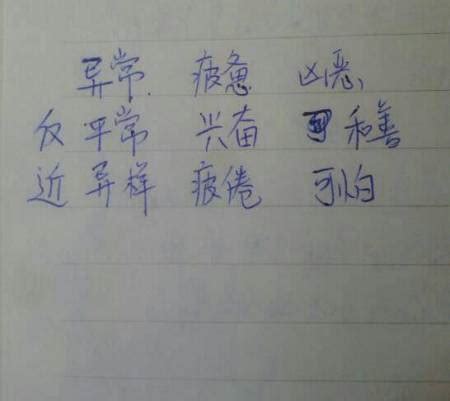 异常. 疲惫 凶恶,
反 平常 兴奋 和善
近 异样 疲倦 可怕